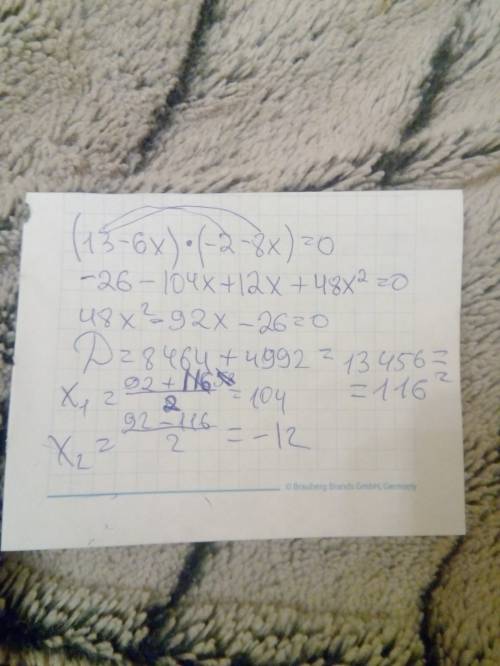 (13-6x)•(-2-8x)=0
-26-104x+12x+48x²=0
48x²-92x-26=0
D=8464+4992=13456=
=116²
x₁=(92+116)/2=104
x₂=(92-116)/2=-12
© Brauberg Brands GmbH, Germany